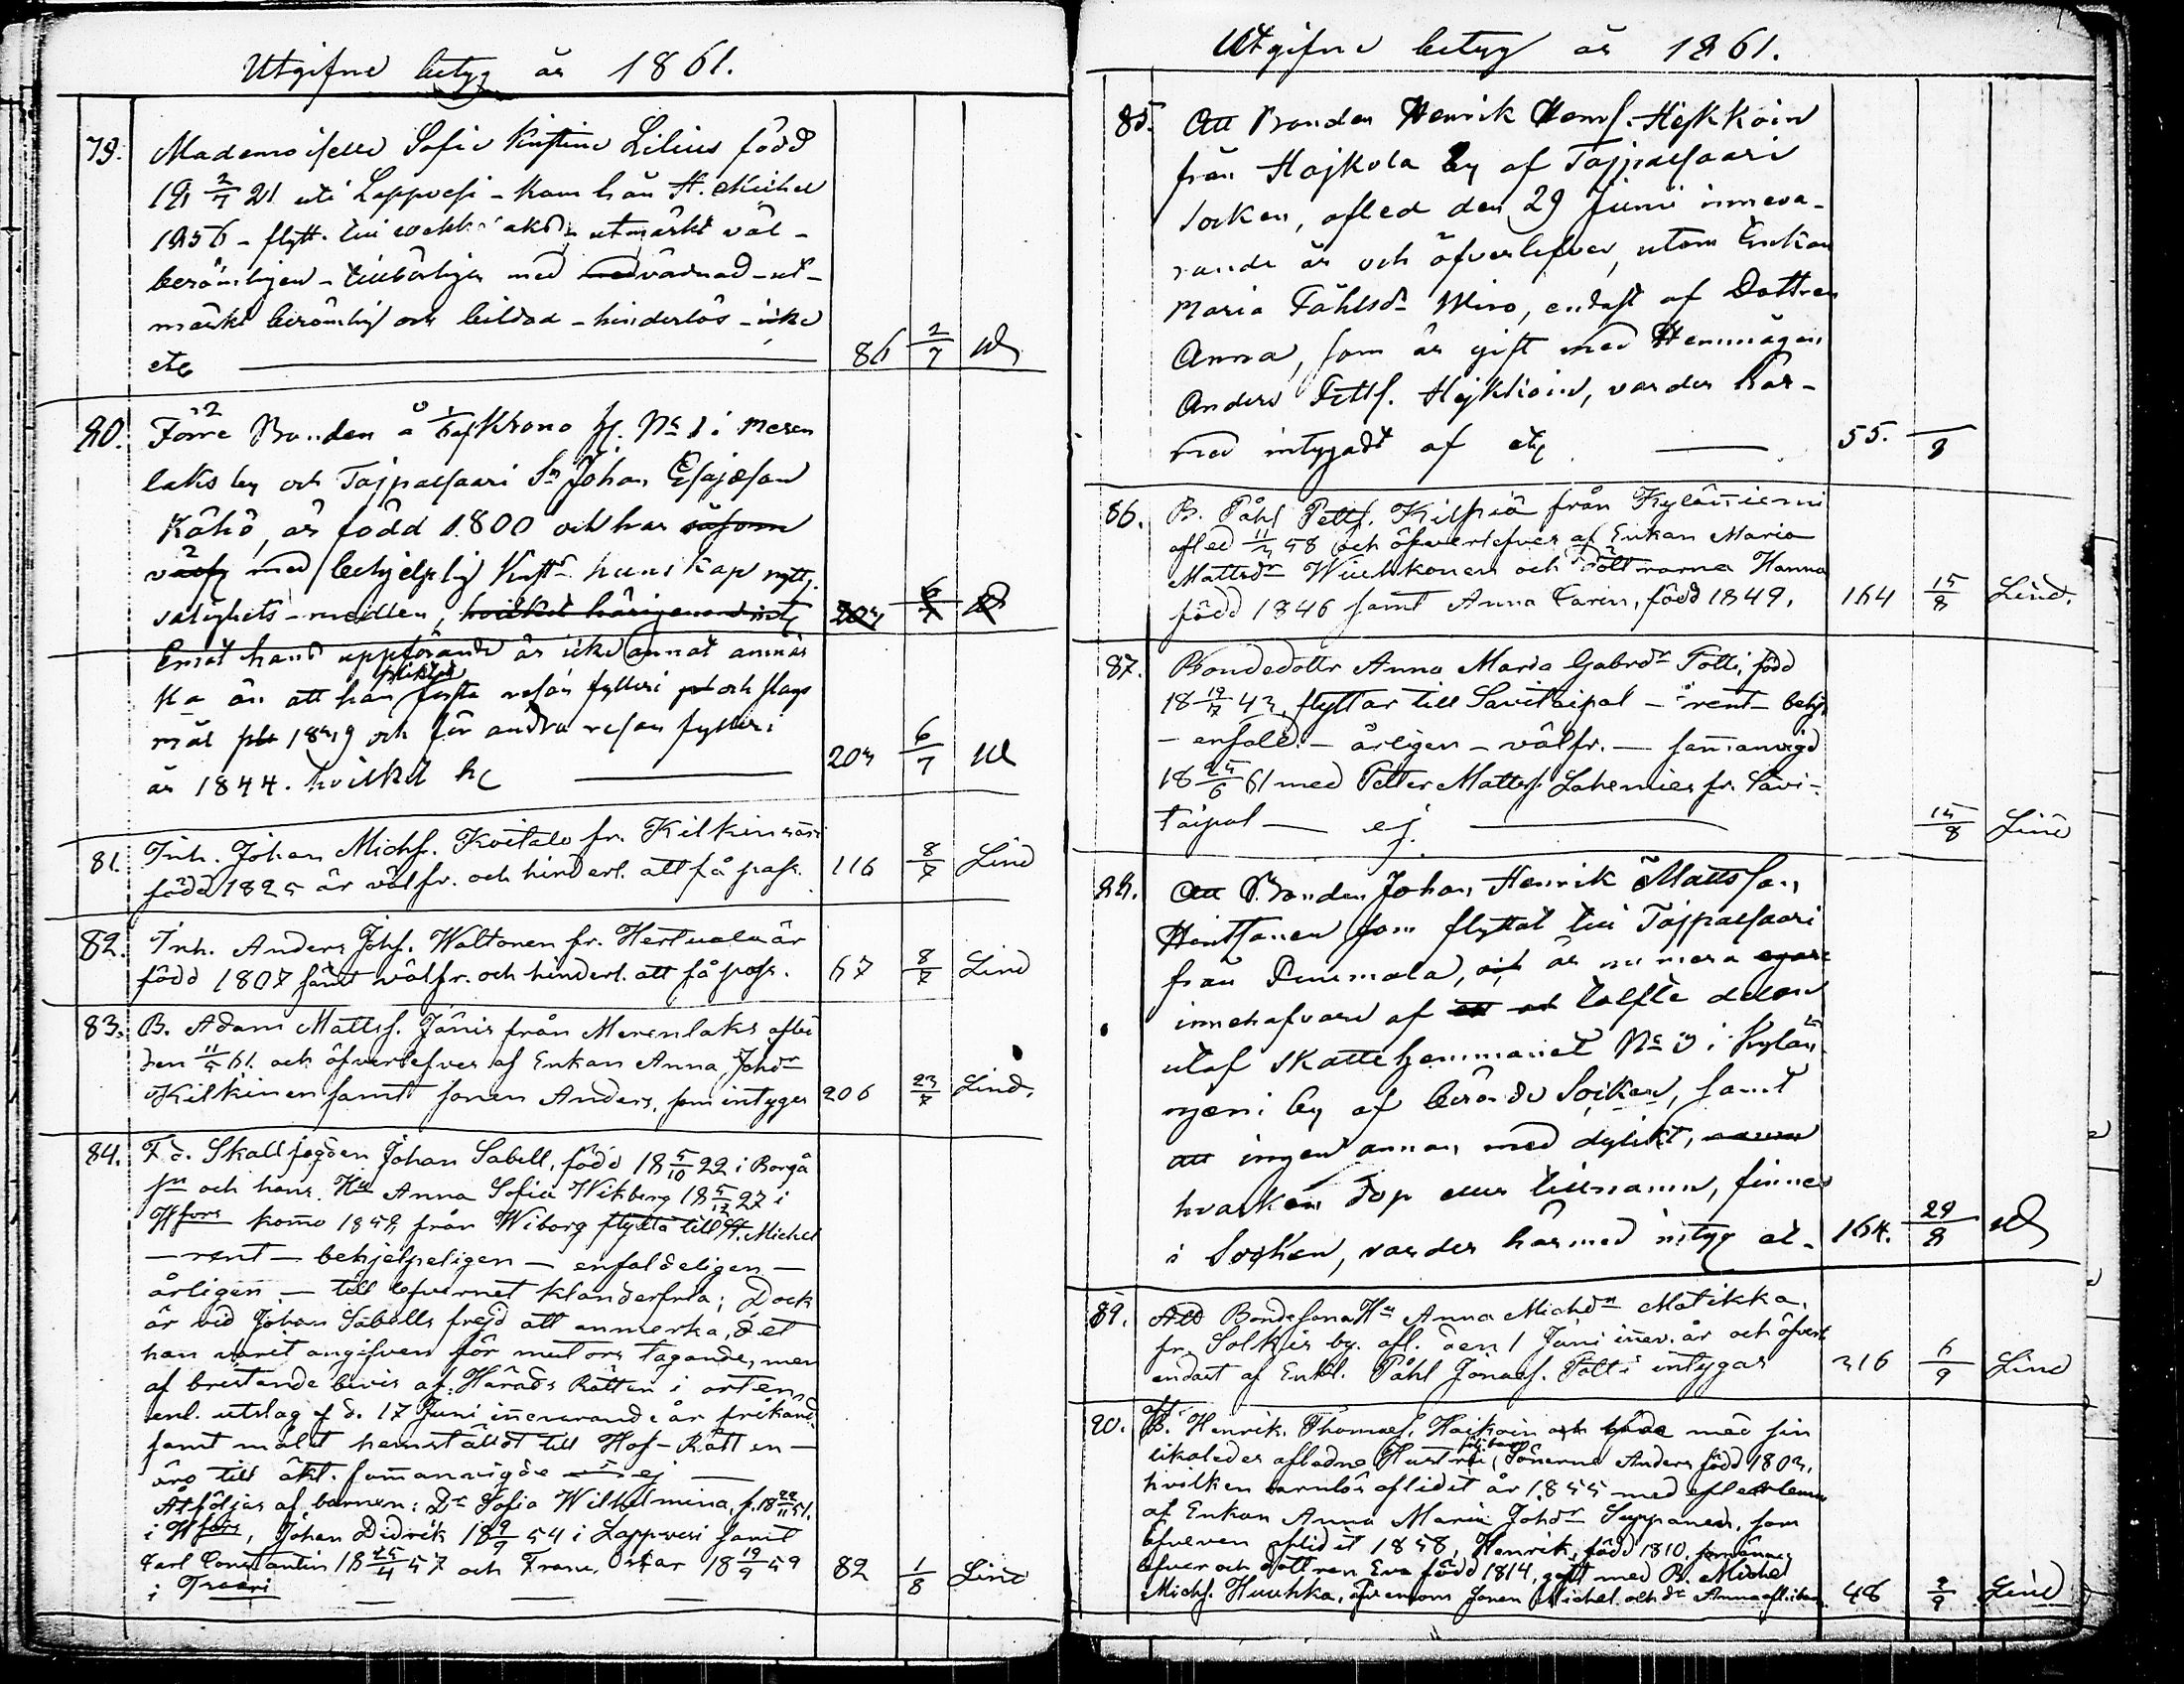 Utgifne betyg år 1861.
79. Mademoiselle Sofie Kristine Lilius född
18 2/7 21 uti Lappvesi - kom från St. Michel
1856 - flytt. till - utmärkt väl -
berömligen - tillbörligen med vårdnad - ut-
märkt berömlig och bildad - hinderlös - icke
etc 86 2/7
80. Förre Bonden å Krono H. No 1 i Meren
laks by och Tajpalsaari Sn Johan Esajasson
Kähö, är född 1800 och har såsom
med behjelplig Christ. kunskap nyttj.
salighets-medlen, hvilket härigenom 203 6/7
Emot hans uppförande är icke annat anmär
ka än att han pliktat första resan fylleri och slags
mål 1839 och för andra resan fylleri
år 1844. hvilket 203 6/7
81. Inh. Johan Michs. Kvitalo fr. Kilkinsaari
född 1825 är välfr. och hinderl. att få pass. 116 8/7 Lind
82. Inh. Anders Johs. Waltonen fr. Hertuala är
född 1807 samt välfr. och hinderl. att få pass. 67 8/7 Lind
83. B. Adam Matts. Jänis från Merenlaks afled
den 11/5 61. och öfverlefves af Enkan Anna Johdr
Kilkinen samt sonen Anders, som intygas 206 23/7 Lind.
84. F. d. Skallfogden Johan Sabell, född 18 5/10 22 i Borgå
sn och hans Hu Anna Sofia Wikberg 18 5/12 27 i
Hfors kommo 1859 från Wiborg flytta till St. Michel
- rent - behjelpeligen - enfaldeligen -
årligen - till lefvernet klanderfria; Dock
är vid Johan Sabells frejd att anmerka, det
han varit angifven för mutors tagande, men
af bristande bevis af Härads Rätten i orten
enl. utslag af d. 17 Juni innevarande år frikänd
samt målet hemstäldt till Hof-Rätten -
äro till äkt. sammanvigde - ej -
Åtföljas af barnen: Dr Sofia Wilhelmina, f. 18 22/11 51.
i Hfors, Johan Didrik 18 9/9 54 i Lappvesi samt
Carl Constantin 18 25/4 57 och Frans Oskar 18 19/9 59
i 82 1/8 Lind
Utgifne betyg år 1861.
85. Att Bonden Henrik Henrs. Hejkkoin
från Hajkola by af Tajpalsaari
socken, afled den 29 Junii inneva-
rande år och öfverlefves, utom Enkan
Maria Påhlsdr Miro, endast af Dottren
Anna, som är gift med Hemmågen
Anders Petts. Hejkkoin, varder här-
med intygadt af etc 55. /8
86. B. Påhl Petts. Kilpiä från Kyläniemi
afled 11/3 58 och öfverlefves af Enkan Maria
Mattsdr Wiuhkonen och döttrarna Hanna
född 1846 samt Anna Caren, född 1849. 164 15/8 Lind.
87. Bondedottr Anna Maria Gabrdr Potti, född
18 19/7 43, flyttar till Savitaipal - rent - behj.
- enfald. - årligen - välfr. - sammanvigd
18 25/6 61 med Petter Matts. Lahenmies fr. Savi-
taipal - ej 15/8 Lind
88. Att Bonden Johan Henrik Mattsson
Hintsanen som flyttat till Tajpalsaari
från Pummala, är nu mera egare
innehafvare af tolfte delen
utaf skattehemmanet No 3 i Kylän
njemi by af berörde Socken, samt
att ingen annan med dylikt,
hvarken dop eller tillnamn, finnes
i Socken, varder härmed intygat. 164. 29/8
89. Att Bondesona Hu Anna Michdr Matikka,
fr. Solkjis by. afl. den 1 Juni innev. år och öfverl.
endast af Enkl. Påhl Jonass. Potti intygas 316 6/9 Lind
90. B. Henrik Thomass. Haikoin och med sin
likaledes aflidne Hustru, Sönerna Anders född 1803,
hvilken barnlös aflidit år 1855 med efterlemn
af Enkan Anna Maria Johdr Suppanen, som
äfven aflidit 1858, Henrik, född 1810,
och dottren Eva född 1814, gift med B. Michel
Michs. Huuhka, äfvensom sonen Michel och dr Anna 46 9/9 Lind